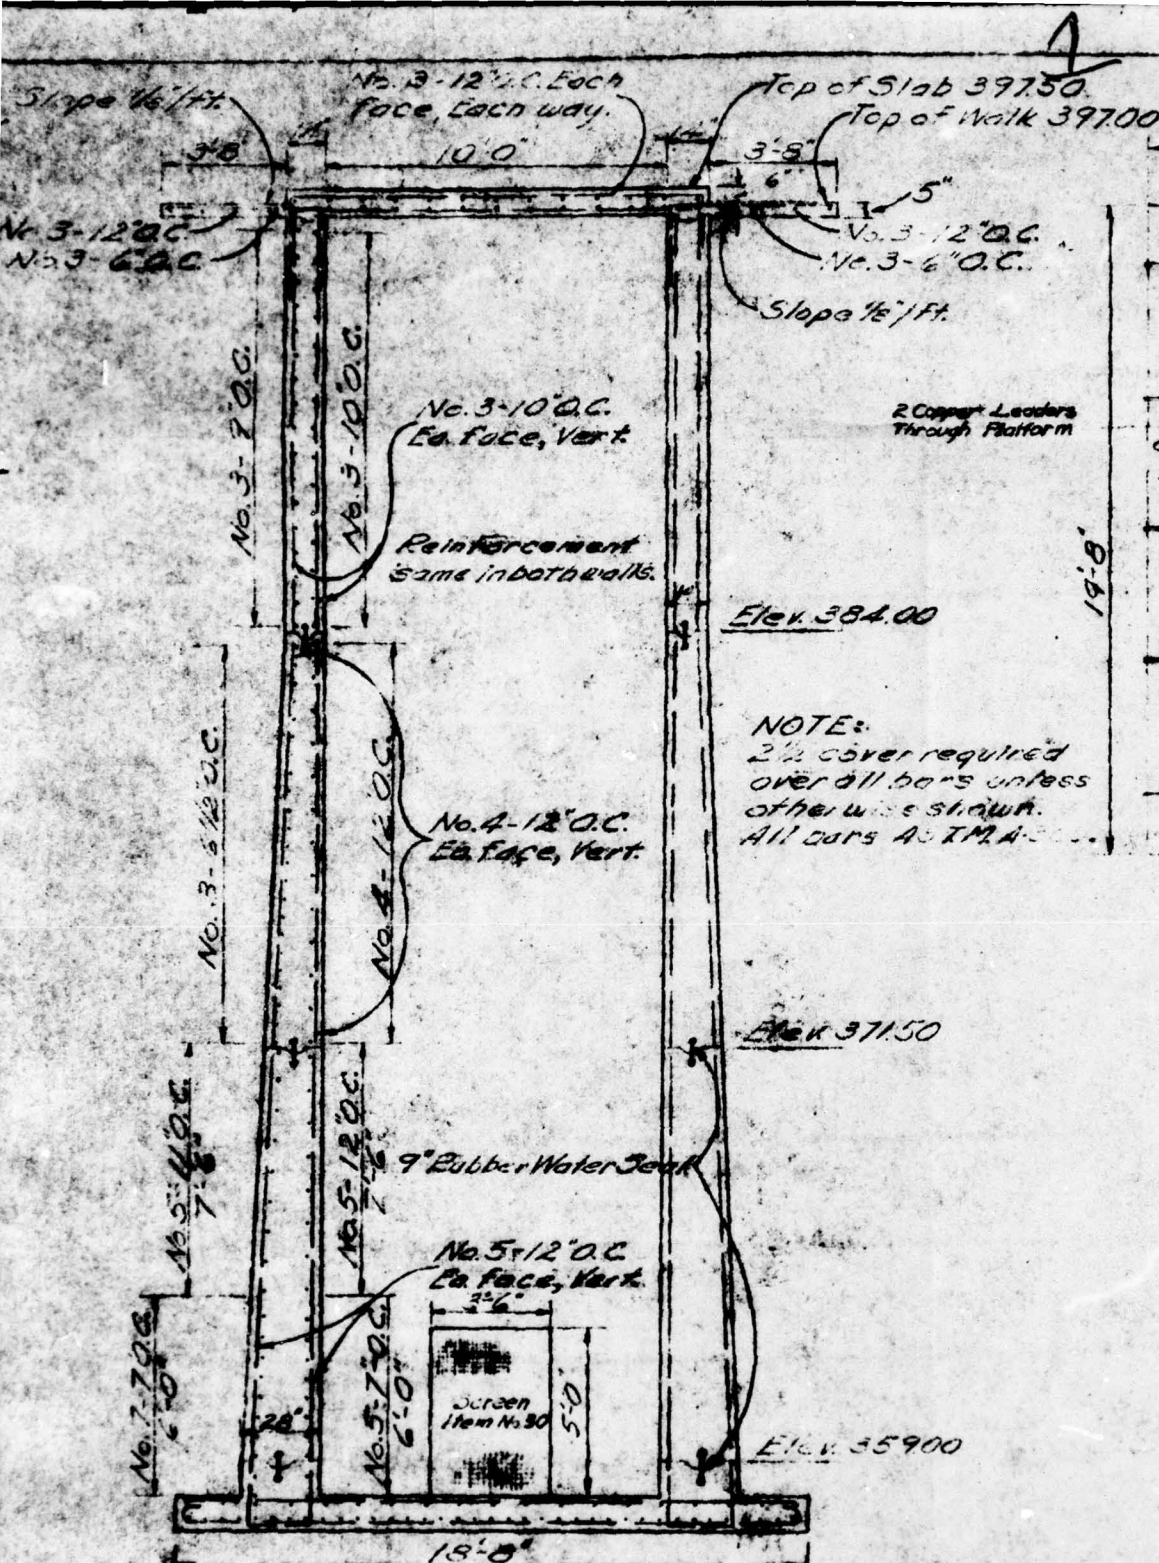 Slope 1/8"/ft.
No. 3-12" O.C. Each
face, Each way.
Top of Slab 397.50
Top of Walk 397.00
3'-8"
10'-0"
3'-8"
6"
5"
No. 3-12" O.C.
No. 3-6" O.C.
No. 3-12" O.C.
No. 3-6" O.C.
Slope 1/8"/ft.
No. 3-7" O.C.
No. 3-10" O.C.
No. 3-10" O.C.
Ea. face, Vert.
2 Copper Leaders
Through Platform
Reinforcement
same in both walls.
19'-8"
Elev. 384.00
NOTE:
2 1/2" cover required
over all bars unless
otherwise shown.
All bars
No. 3-6 1/2" O.C.
No. 4-12" O.C.
No. 4-12" O.C.
Ea. face, Vert.
Elev. 371.50
No. 5-11" O.C.
7'-6"
No. 5-12" O.C.
7'-6"
9" Rubber Water Seal
No. 5-12" O.C.
Ea. face, Vert.
No. 7-7" O.C.
6'-0"
No. 5-7" O.C.
6'-0"
28"
Screen
Item No. 30
5'-0"
Elev. 359.00
18'-8"